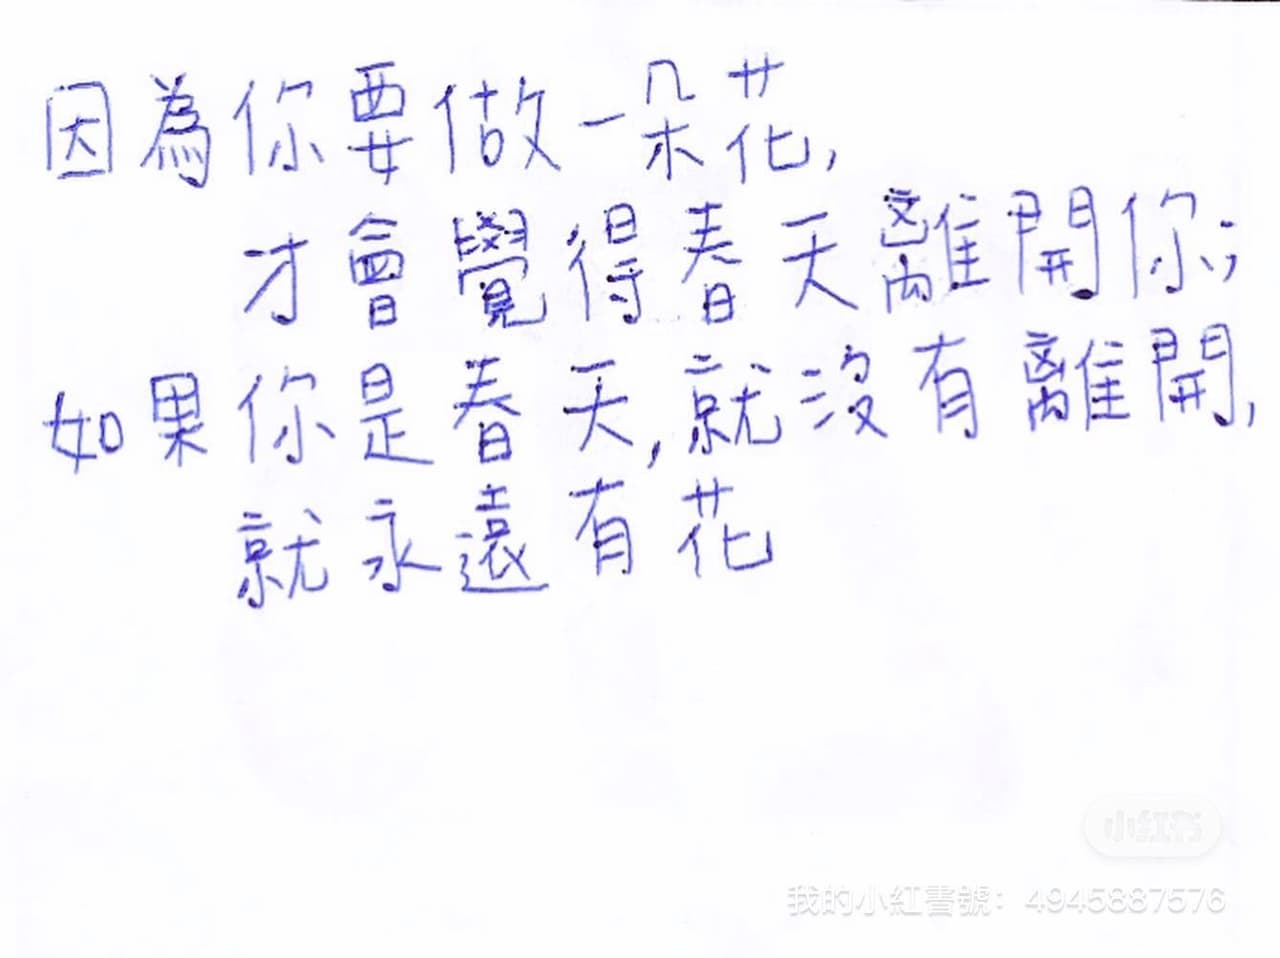 因為你要做一朵花,
才會覺得春天離開你;
如果你是春天,就沒有離開,
就永遠有花
小红书
我的小紅書號: 4945887576